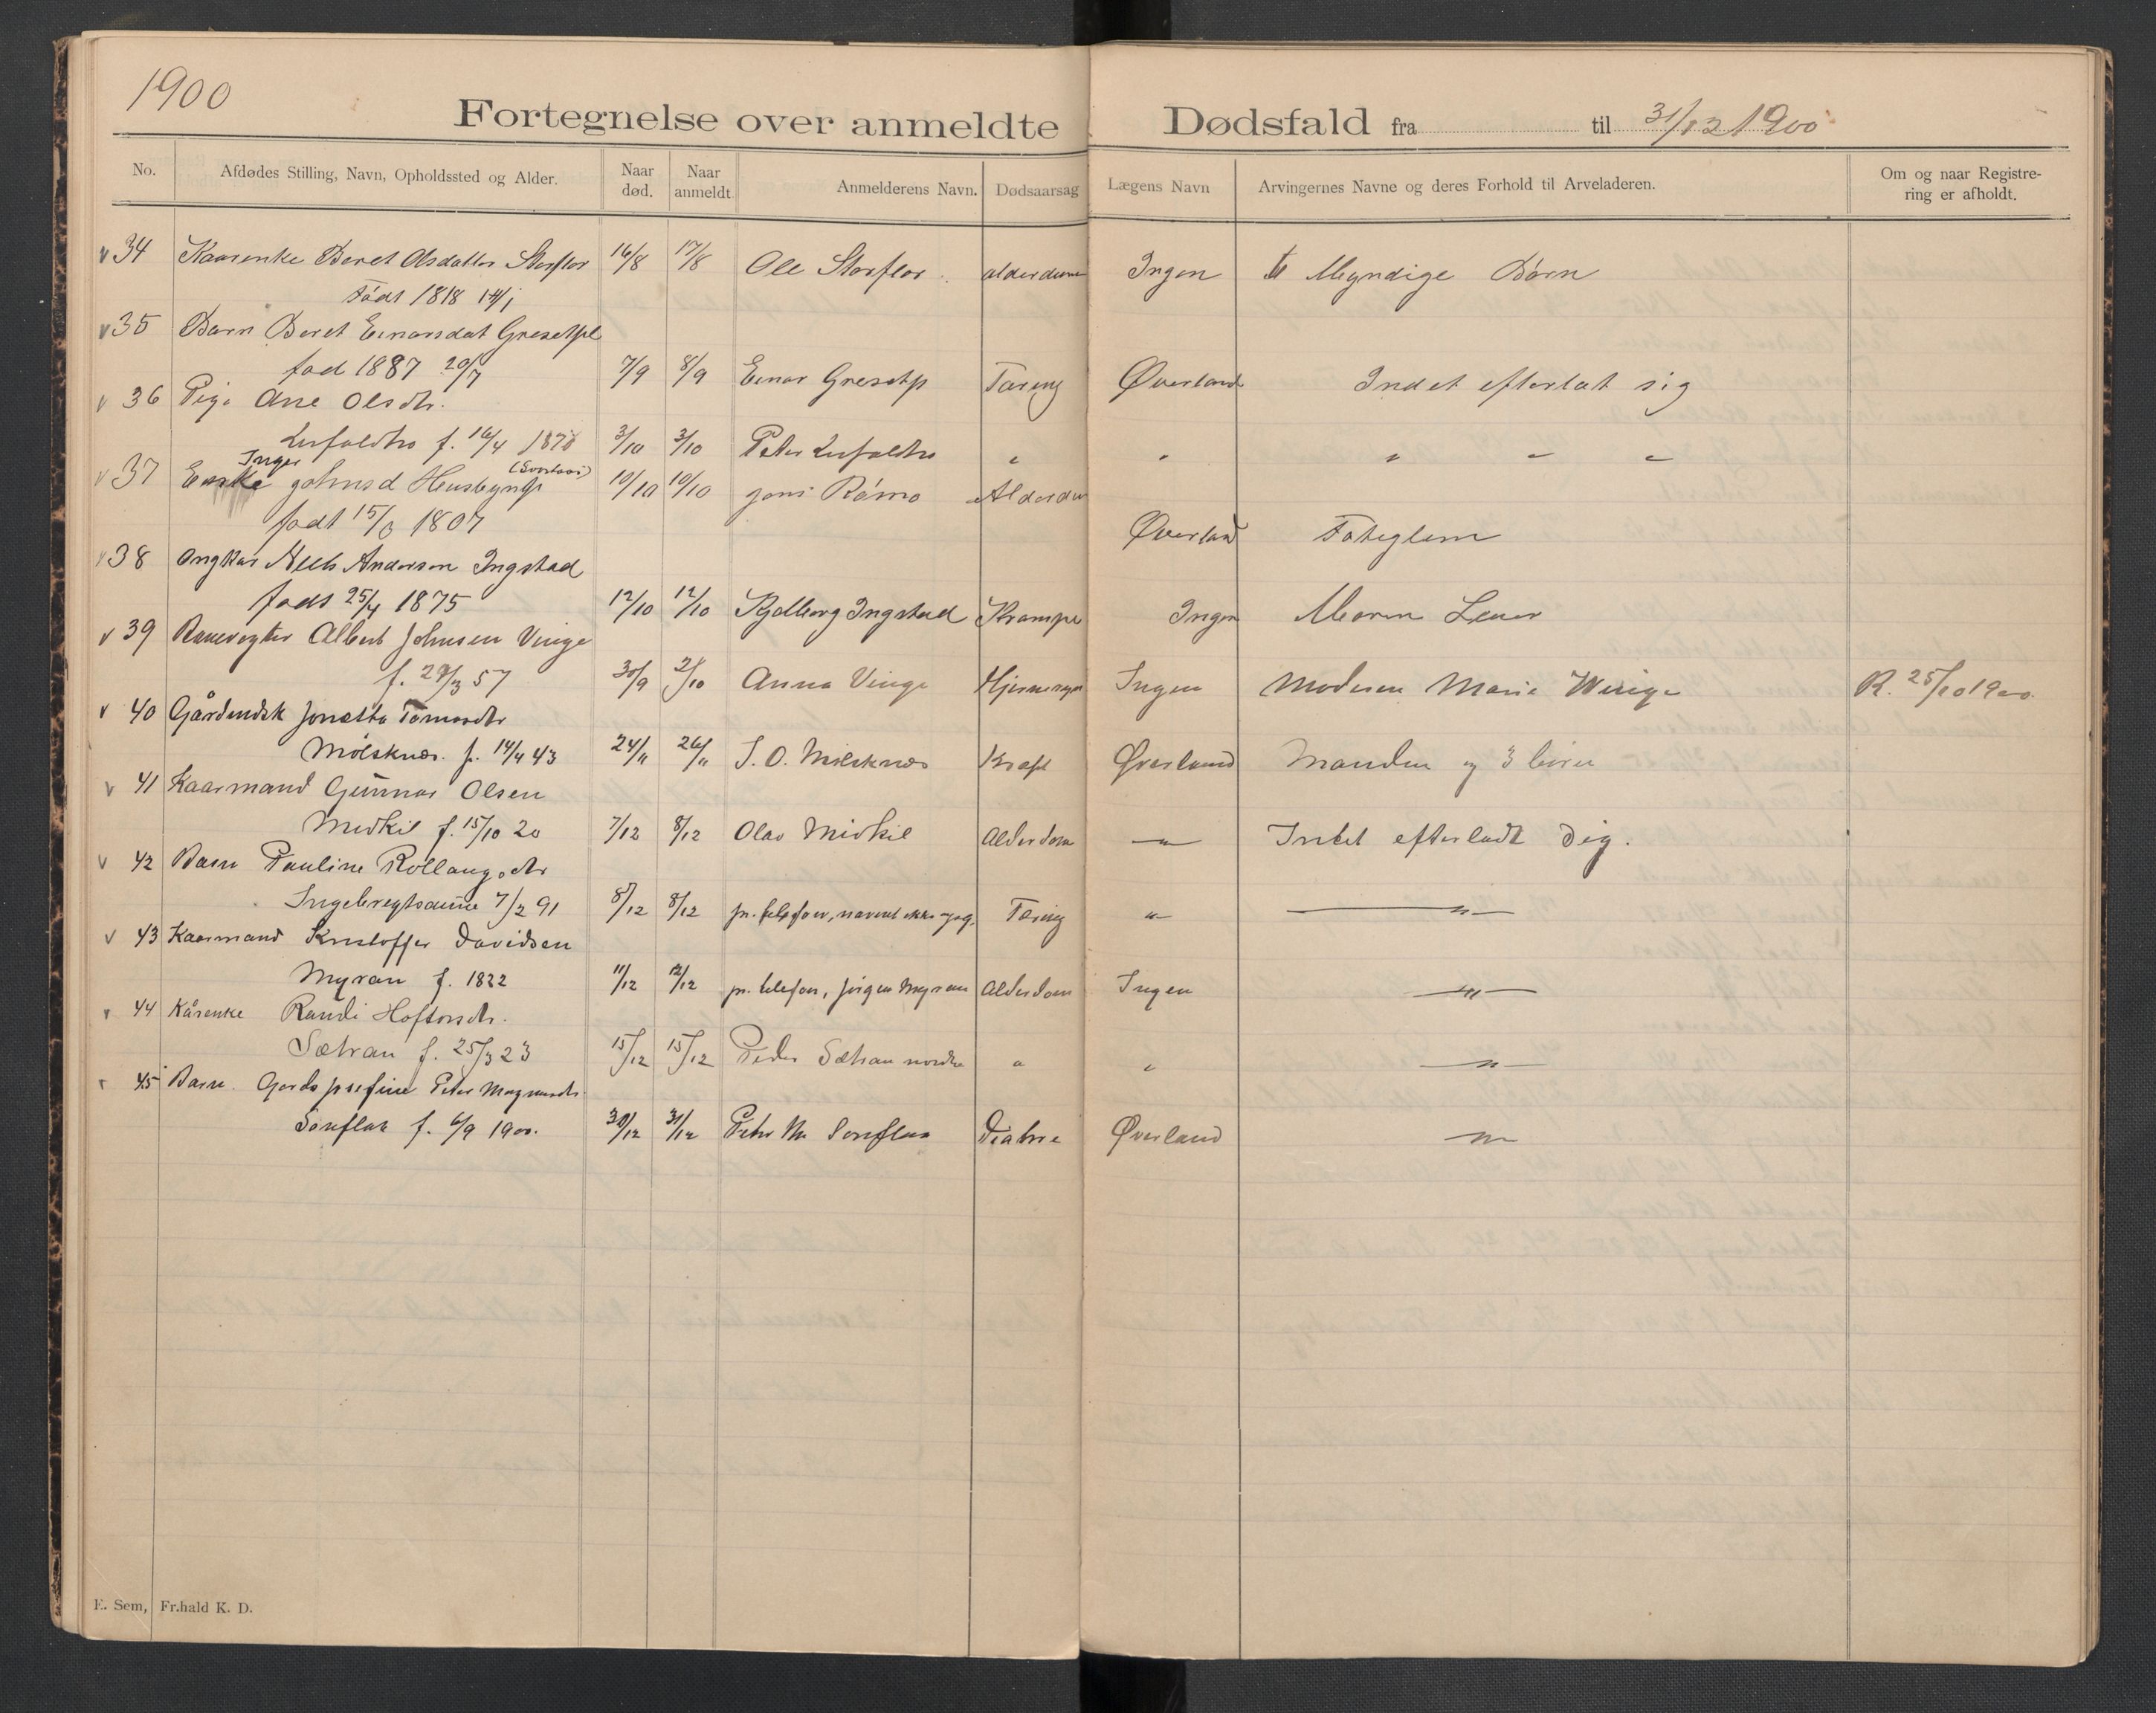 1900
Fortegnelse over anmeldte Dødsfald fra til 31/12 1900
No. Afdødes Stilling, Navn, Opholdssted og Alder. Naar død. Naar anmeldt. Anmelderens Navn. Dødsaarsag Lægens Navn Arvingernes Navne og deres Forhold til Arveladeren. Om og naar Registrering er afholdt.
v 34 Kaarenke Beret Olsdatter Storflor 16/8 17/8 Ole Storflor. alderdum Ingen Myndige Børn
Født 1818
v 35 Barn Beret Einarsdat Gresetpl
fød 1887 20/7 7/9 8/9 Einar Gresetp Tæring Øverland Indet efterlat sig
v 36 Pige Ane Olsdtr.
f. 16/4 1878 3/10 3/10 Peter " " " " "
Inger
v 37 Enke Johnsd 10/10 10/10 Joni Rømo Alderdu
født 15/3 1807 Øverland
v 38 Ungkar Neels Anderson Ingstad
født 25/4 1875 12/10 12/10 Kjelberg Ingstad Krampe Ingen
v 39 Albert Johnsen Vinge
f. 29/3 57 30/9 2/10 Anna Vinge Ingen Moderen Marie Winge R. 25/10 1900.
v 40 Gårdmdsk Jonetta Tomasdtr
Mølsknæs. f. 14/4 43 24/11 26/11 J. O. Mølsknæs Kræft Øverland Manden og 3 børn
v 41 Kaarmand Gunnar Olsen
Midkil f. 15/10 20 7/12 8/12 Olav Midkil Alderdom " Intet efterladt sig.
v 42 Barn Pauline Rollaugsdtr
Ingebregtsaune 7/2 91 8/12 8/12 pr. telefon, navnet ikke opg. Tæring " "
v 43 Kaarmand Kristoffer Davidsen
Myran f. 1822 11/12 12/12 pr. telefon, Jørgen Myran Alderdom Ingen "
v 44 Kårenke Randi Haftorsdtr.
Sætran f. 25/3 23 15/12 15/12 Peder Sætran nordre " " "
v 45 Barn. Gerda Josefine Peter Magnusdtr.
f. 6/9 1900. 30/12 31/12 Peter M. Øverland "
E. Sem, Fr.hald K. D.